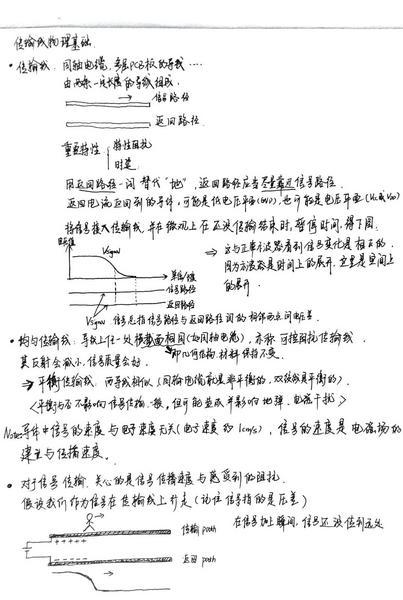 传输线物理基础.
• 传输线. 同轴电缆, 多层PCB板的导线……
由两条一定长度的导线组成.
信号路径
返回路径.
重要特性 特性阻抗
时延.
用返回路径一词替代"地", 返回路径应当尽量靠近信号路径.
返回电流返回到的导体, 可能是低电压平面(GND), 也可能是电压平面(Vcc或VDD)
将信号接入传输线, 并在微观上在还没传输结束时, 暂停时间, 得下图.
电压值
Vsignal
单位/值
信号路径
返回路径
⇒ 这与正常示波器看到信号变化是相反的.
因为示波器是时间上的展开, 这里是空间上
的展开.
Vsignal 信号总指信号路径与返回路径间的相邻两点间电压差.
• 均匀传输线. 导线上任一处横截面相同(如同轴电缆), 亦称 可控阻抗传输线.
其反射会减小, 信号质量会好. 即几何结构, 材料保持不变.
⇒ 平衡传输线. 两导线相似 (同轴电缆就是非平衡的, 双绞线是平衡的).
<平衡与否不影响信号传输, 但可能造成并影响地弹, 电磁干扰>
Note: 导体中信号的速度与电子速度无关(电子速度约1cm/s), 信号的速度是电磁场的
建立与传播速度.
• 对于信号传输. 关心的是信号传播速度与感受到的阻抗.
假设我们作为信号在传输线上行走 (记住信号指的是压差)
传输path
返回path
在信号加上瞬间, 信号还没传到远处